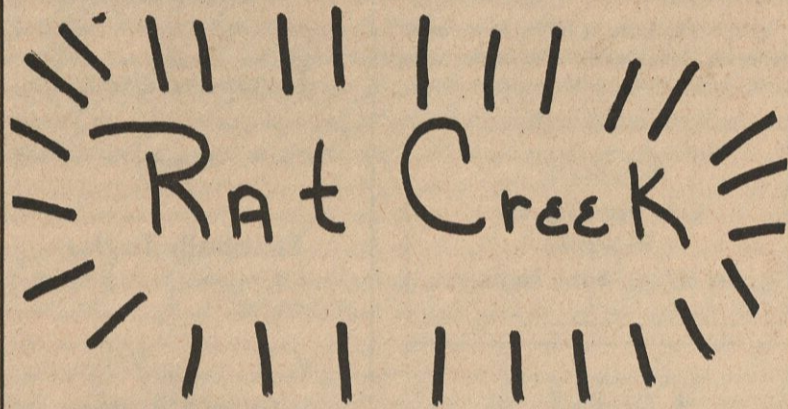 Rat Creek